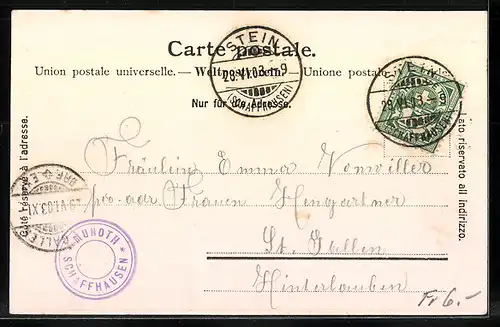 Carte postale.
Union postale universelle. — Weltpostverein. — Unione postale
Nur für die Adresse.
Côté réservé à l'adresse.
Lato riservato all indirizzo.
STEIN
29.VI.03.-9
(SCHAFFHAUSEN)
STEIN
29.VI.03.-9
(SCHAFFHAUSEN)
Fräulein Emma Vonwiller
pro adr. Frauen Hengartner
St. Gallen
Hinterlauben
GALLEN
29.VI.03.XI
MUNOTH
SCHAFFHAUSEN
Fr 6.-